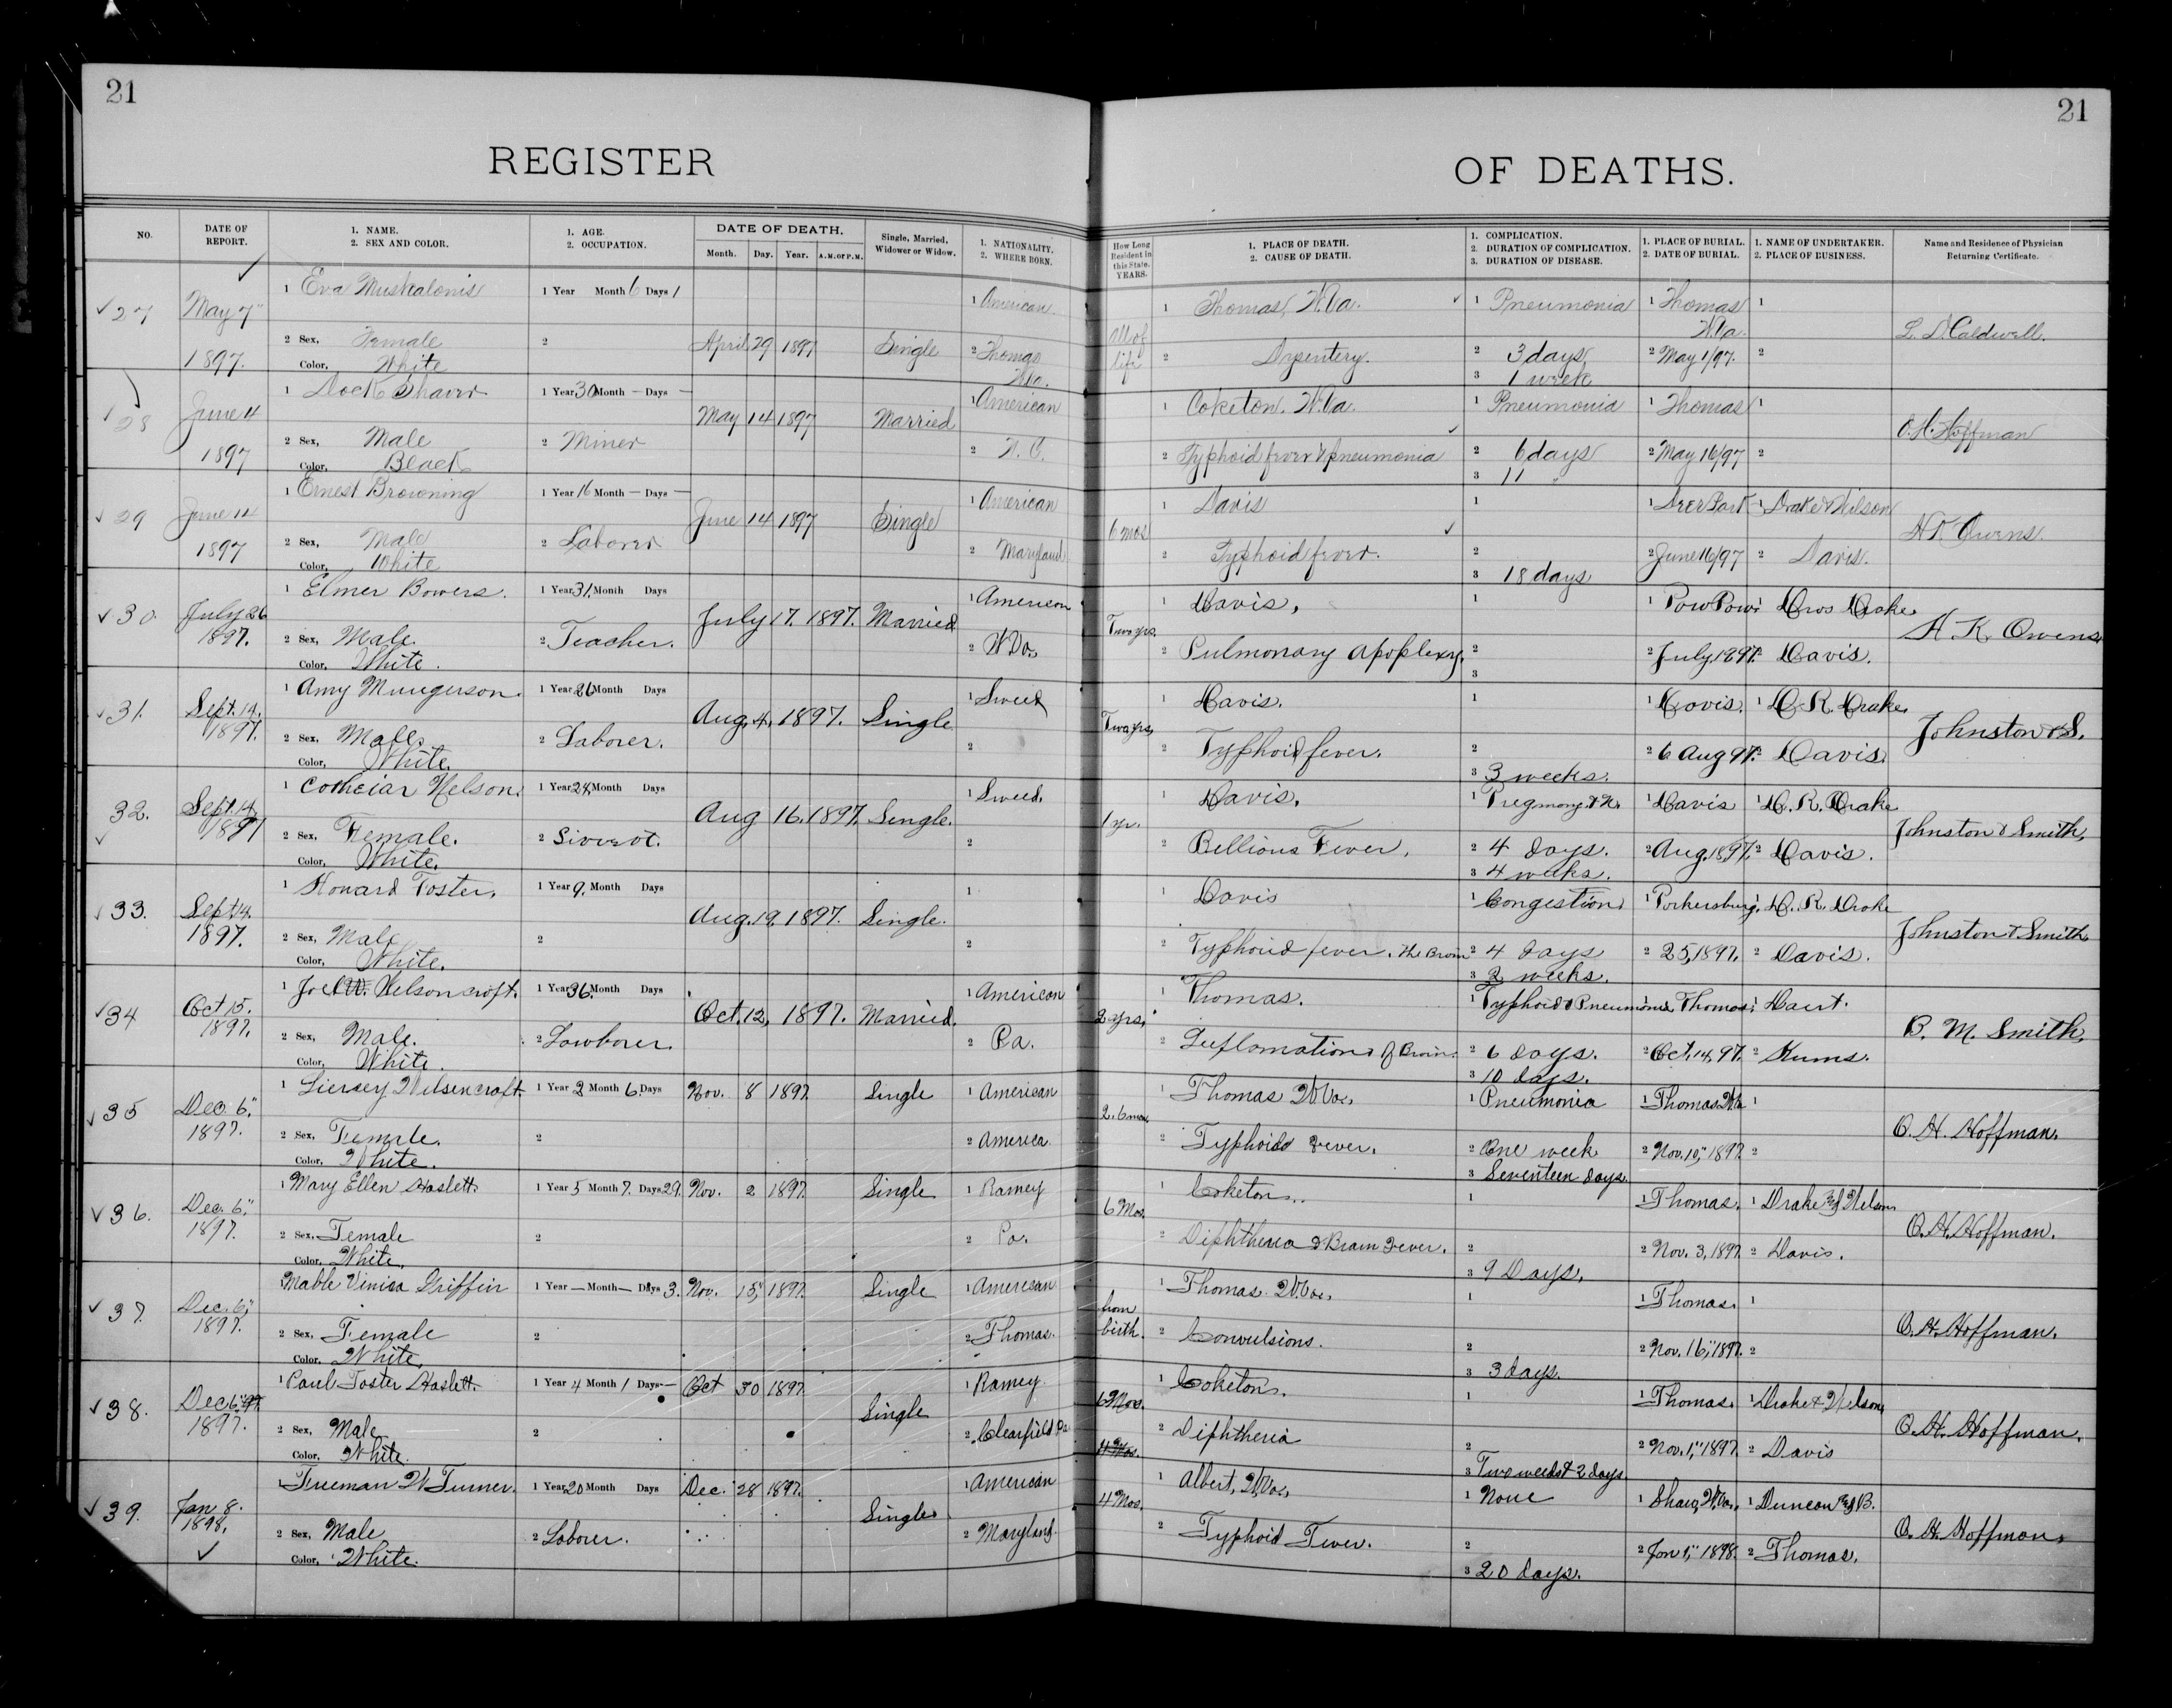 21
21
REGISTER
OF DEATHS.
NO.
DATE OF REPORT.
1. NAME.
2. SEX AND COLOR.
1. AGE.
2. OCCUPATION.
DATE OF DEATH.
Month. Day. Year. A.M. or P.M.
Single, Married, Widower or Widow.
1. NATIONALITY.
2. WHERE BORN.
How Long Resident in this State. YEARS.
1. PLACE OF DEATH.
2. CAUSE OF DEATH.
1. COMPLICATION.
2. DURATION OF COMPLICATION.
3. DURATION OF DISEASE.
1. PLACE OF BURIAL.
2. DATE OF BURIAL.
1. NAME OF UNDERTAKER.
2. PLACE OF BUSINESS.
Name and Residence of Physician Returning Certificate.
27 May 7" 1 Eva Muskalonis 1 Year Month 6 Days 1 1 American 1 Thomas, W.Va. 1 Pneumonia 1 Thomas W.Va. 1
1897. 2 Sex, Female 2 April 29 1897 Single 2 Thomas W.Va. All of life 2 Dysentery. 2 3 days 2 May 1/97. 2 L. D. Caldwell.
Color, White 3 1 week
28 June 4 1 Dock Shaver 1 Year 30 Month — Days — May 14 1897 Married 1 American 1 Coketon, W.Va. 1 Pneumonia 1 Thomas 1
1897 2 Sex, Male 2 Miner 2 N. C. 2 Typhoid fever & pneumonia 2 6 days 2 May 16/97 2 O. H. Hoffman
Color, Black 3 11 "
29 June 14 1 Ernest Browning 1 Year 16 Month — Days — June 14 1897 Single 1 American 6 mos 1 Davis 1 1 Deer Park 1 Drake & Wilson
1897 2 Sex, Male 2 Laborer 2 Maryland 2 Typhoid fever. 2 2 June 16/97 2 Davis. Owens.
Color, White 3 18 days
30. July 26 1 Elmer Bowers. 1 Year 31, Month Days July 17. 1897. Married 1 American Two yrs. 1 Davis, 1 1 Pow Pow 1 Dros Drake
1897. 2 Sex, Male. 2 Teacher. 2 W Va. 2 Pulmonary Apoplexy. 2 2 July, 1897. 2 Davis. A. K. Owens
Color, White. 3
31. Sept. 14, 1 Amy Mungerson. 1 Year 26 Month Days Aug. 4, 1897. Single 1 Sweed Two yrs, 1 Davis. 1 1 Davis. 1 D. R. Drake,
1897. 2 Sex, Male. 2 Laborer. 2 2 Typhoid fever. 2 2 6 Aug 97. 2 Davis. Johnston & S.
Color, White. 3 3 weeks.
32. Sept. 14, 1 Nelson. 1 Year 24, Month Days Aug 16. 1897. Single. 1 Sweed. 1 yr. 1 Davis. 1 1 Davis 1 D. R. Drake
1897 2 Sex, Female. 2 2 2 Bellious Fever. 2 4 days. 2 Aug. 18, 97. 2 Davis. Johnston & Smith,
Color, White. 3 4 weeks.
33. Sept 14. 1 Howard Foster. 1 Year 9, Month Days Aug. 19, 1897. Single. 1 1 Davis 1 Congestion 1 Porkersburg, 1 D. R. Drake
1897. 2 Sex, Male 2 2 2 Typhoid fever. The Brain 2 4 days 2 25, 1897. 2 Davis. Johnston & Smith
Color, White. 3 2 weeks.
34 Oct 15. 1 Joel W. Nelsoncroft. 1 Year 36. Month Days Oct. 12, 1897. Married. 1 American 2 yrs, 1 Thomas. 1 Typhoid & Pneumonia 1 Thomas. 1
1897, 2 Sex, Male. 2 Lowborer 2 Pa. 2 Inflomation of Brain. 2 6 days. 2 Oct. 14, 97. 2 B. M. Smith,
Color, White. 3 10 days.
35 Dec. 6," 1 Wilsencroft. 1 Year 2 Month 6 Days Nov. 8 1897. Single 1 American 2. 6 mos. 1 Thomas W.Va., 1 Pneumonia 1 Thomas W.Va 1
1897. 2 Sex, Female. 2 2 America 2 Typhoid Fever. 2 One week 2 Nov. 10," 1897. 2 O. H. Hoffman.
Color, White. 3 Seventeen days
36. Dec. 6," 1 Mary Ellen Haslett. 1 Year 5 Month 7. Days 29. Nov. 2 1897. Single 1 Ramey 6 Mos. 1 Coketon.. 1 1 Thomas. 1 Drake & Nelson
1897. 2 Sex, Female 2 2 Pa. 2 Diphtheria & Brain Fever. 2 2 Nov. 3, 1897. 2 Davis. O. H. Hoffman.
Color, White, 3 9 Days,
37. Dec. 6," Mable Vinica Griffin 1 Year — Month — Days 3. Nov. 15," 1897. Single 1 American from birth. 1 Thomas. W.Va., 1 1 Thomas. 1
1897. 2 Sex, Female 2 2 Thomas. 2 Convulsions. 2 2 Nov. 16," 1897. 2 O. H. Hoffman.
Color, White, 3 3 days.
38. Dec 6," 97. 1 Paul Foster Haslett. 1 Year 4 Month 1 Days — Oct 30 1897. Single 1 Ramey 6 Mos. 1 Coketon. 1 1 Thomas. 1 Drake & Nelson
1897. 2 Sex, Male 2 2 Clearfield Pa. 4 Mos. 2 Diphtheria 2 2 Nov. 1," 1897. 2 Davis O. H. Hoffman.
Color, White. 3 Two weeks & 2 days
39. Jan 8. 1 Freeman W Turner. 1 Year 20 Month Days Dec. 28 1897. Single 1 American 4 Mos. 1 Albert, W.Va., 1 None 1 Shaw, W.Va., 1 Duncan & B.
1898, 2 Sex, Male 2 Laborer. 2 Maryland. 2 Typhoid Fever. 2 2 Jan 1," 1898. 2 Thomas. O. H. Hoffman.
Color, White. 3 20 days.